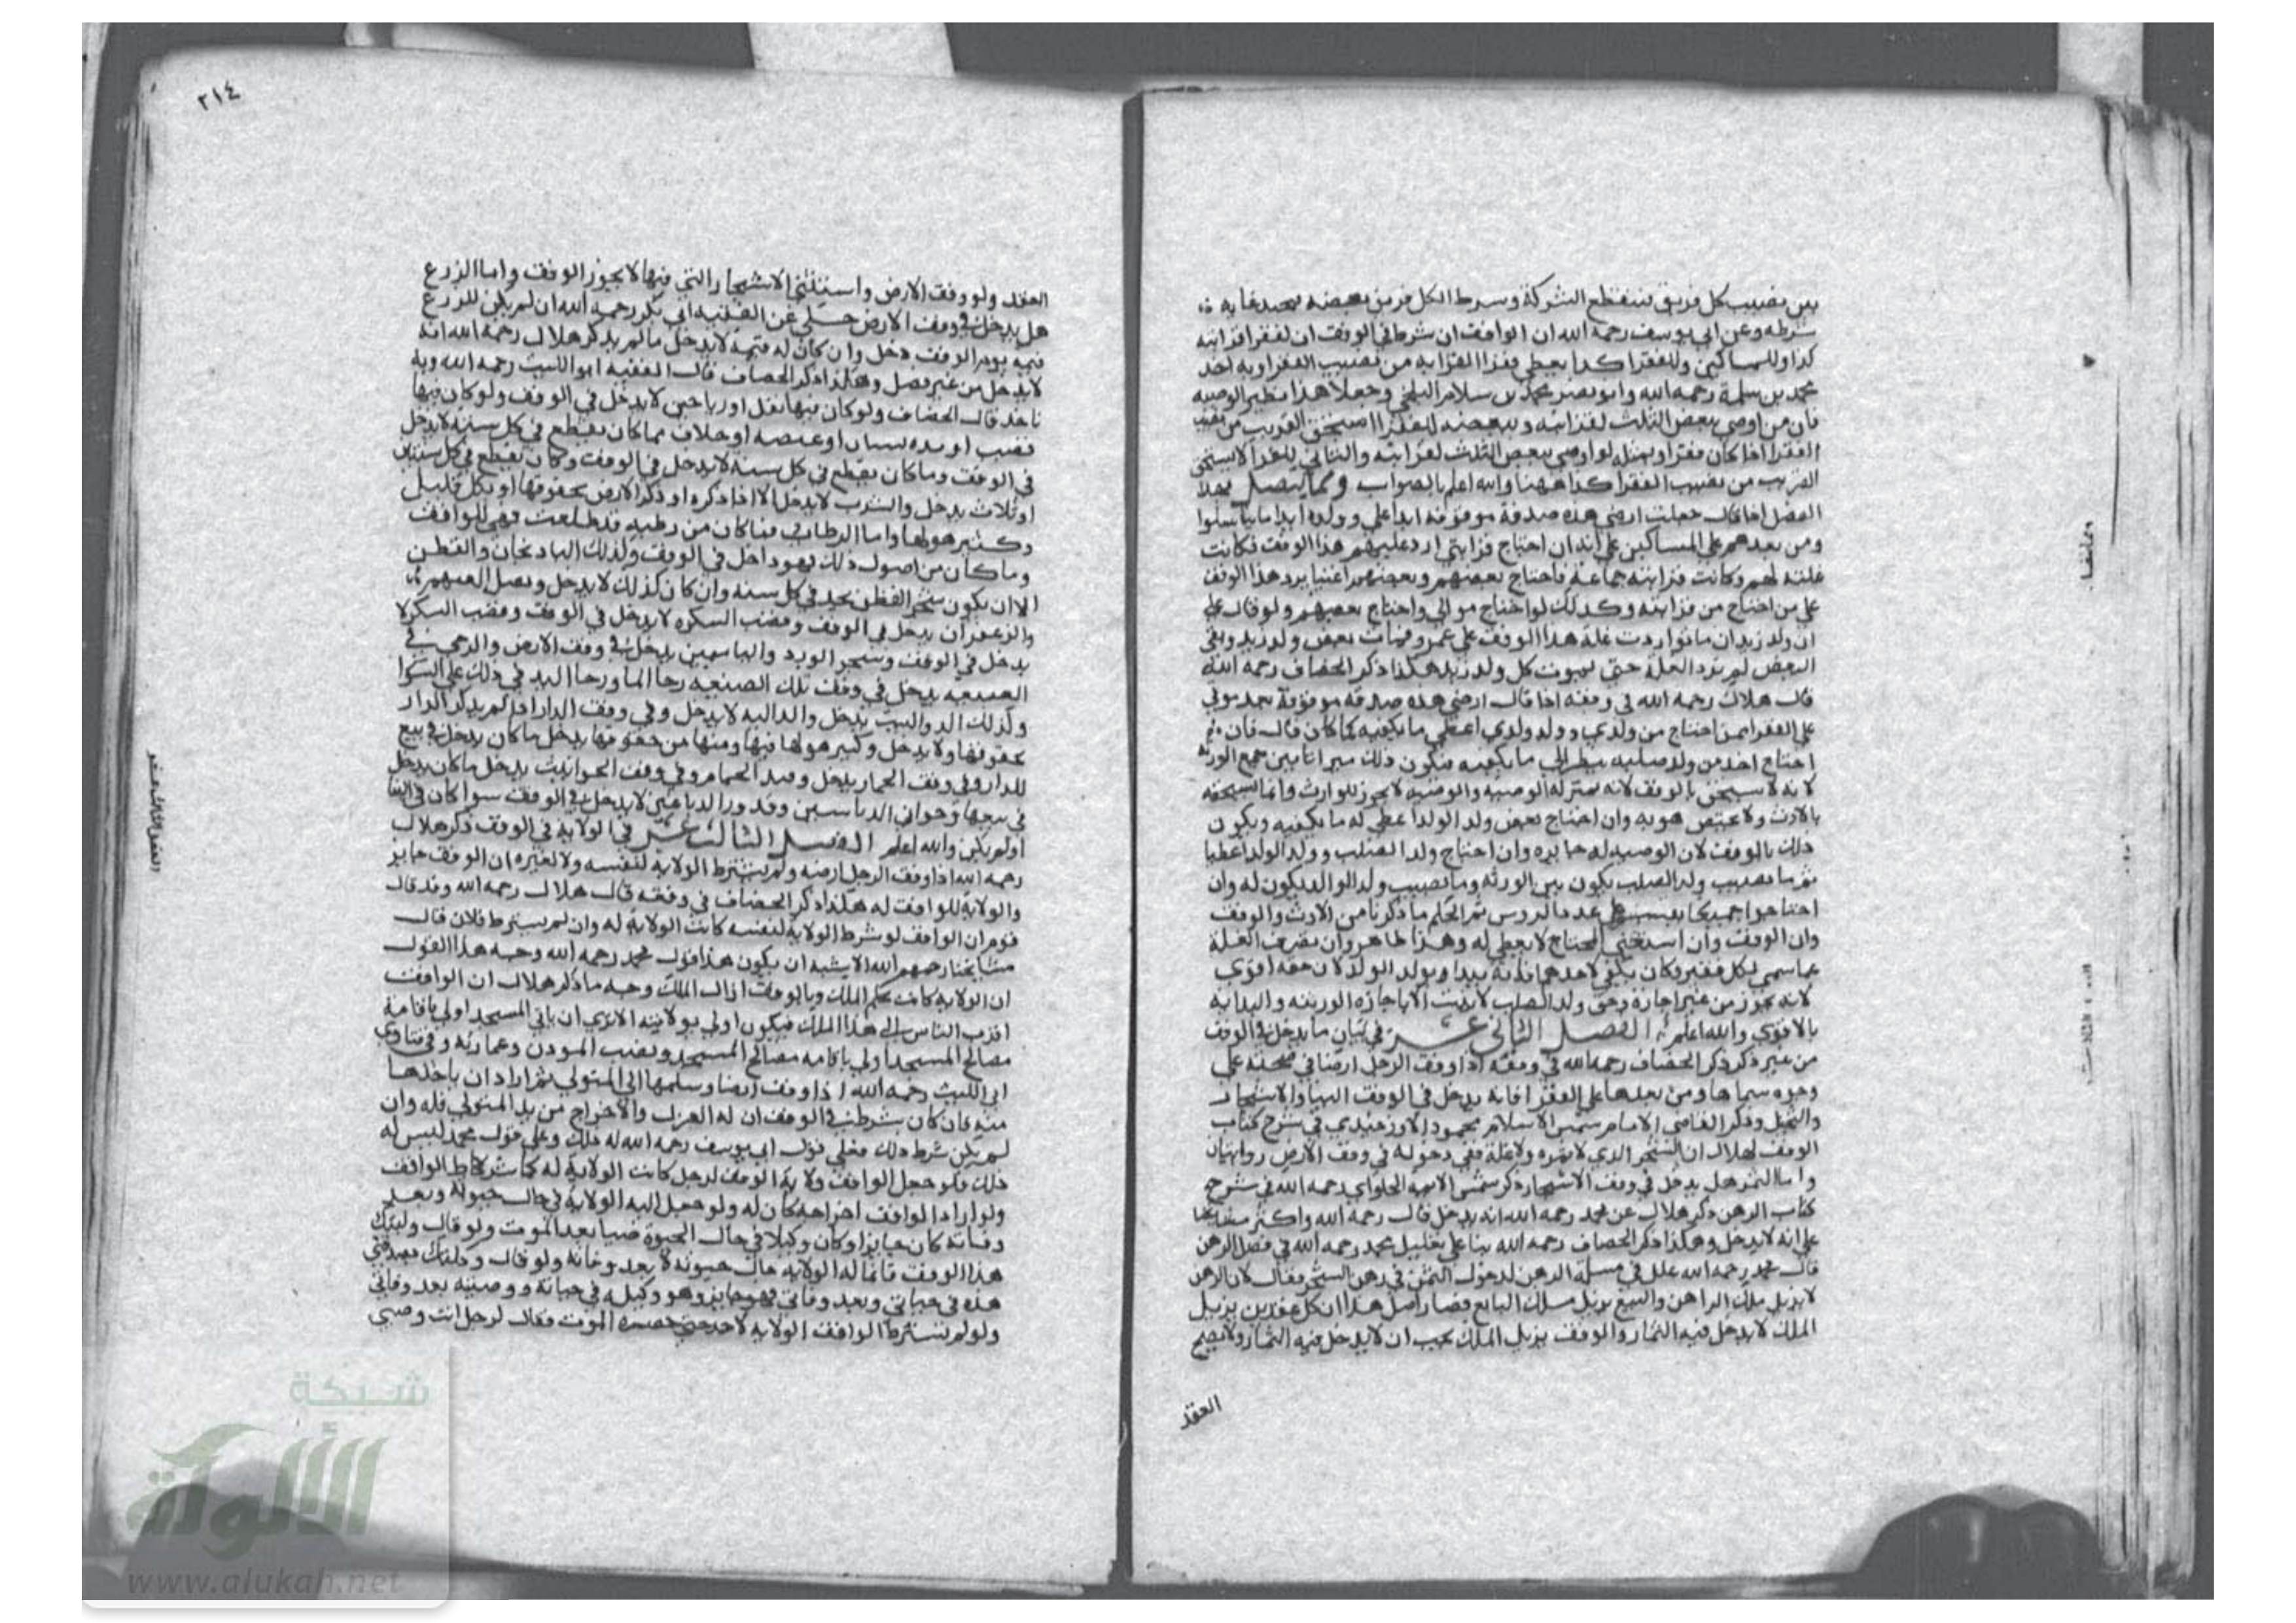 بين نصيب كل فريق فينقطع الشركة وشرط الكل فريق بعضه فيجب رعاية
شرطه وعن ابي يوسف رحمه الله ان الواقف ان شرط في الوقف ان لفقرا قرابته
كذا وللمساكين وللفقرا كذا يعطي فقرا القرابة من نصيب الفقرا وبه اخذ
محمد بن سلمة رحمه الله وابو نصر محمد بن سلام البلخي وجعلا هذا نظير الوصية
فان من اوصي ببعض الثلث لقرابته وببعضه للفقرا استحق القريب من نصيب
الفقرا اذا كان فقيرا وبمثله لو اوصي ببعض الثلث لقرابته والباقي للفقرا لا يستحق
القريب من نصيب الفقرا كذا ههنا والله اعلم بالصواب ومما يتصل بهذا
الفصل اذا قال جعلت ارضي هذه صدقة موقوفة ابدا علي وولده ابدا ما تناسلوا
ومن بعدهم علي المساكين علي انه ان احتاج قرابتي ارد عليهم هذا الوقف فكانت
غلته لهم وكانت قرابته جماعة فاحتاج بعضهم وبعضهم اغنيا يرد هذا الوقف
علي من احتاج من قرابته وكذلك لو احتاج موالي واحتاج بعضهم ولو قال علي
ان ولد زيد ان ماتوا ردت غلة هذا الوقف علي عمرو فمات بعض ولد زيد وبقي
البعض لم ترد الغلة حتي يموت كل ولد زيد هكذا ذكر الخصاف رحمه الله
قال هلال رحمه الله في وقفه اذا قال ارضي هذه صدقة موقوفة بعد موتي
علي الفقرا فمن احتاج من ولدي وولد ولدي اعطي ما يكفيه كما كان قال فان
احتاج احد من ولد صلبه ينظر الي ما يكفيه فيكون ذلك ميراثا بين جميع الورثة
لانه لا يستحق بالوقف لانه بمنزلة الوصية والوصية لا تجوز للوارث وانما يستحقه
بالارث ولا يختص هو به وان احتاج بعض ولد الولد اعطي له ما يكفيه ويكون
ذلك بالوقف لان الوصية له جايزة وان احتاج ولد الصلب وولد الولد اعطيا
ثم ما نصيب ولد الصلب يكون بين الورثة وما نصيب ولد الولد يكون له وان
احتاجوا جميعا يقسم علي عدد الروس ثم الحكم ما ذكرنا من الارث والوقف
وان الوقف وان استغني المحتاج لا يعطي له وهذا ظاهر وان نصرف الغلة
عما سمي لكل فقير وكان يكفي لاحدهما فانه يبدا بولد الولد لان حقه اقوي
لانه يجوز من غير اجازة وحق ولد الصلب لا يثبت الا باجازة الورثة والبداية
بالاقوي والله اعلم الفصل الثاني عشر في بيان ما يدخل في الوقف
من غير ذكر ذكر الخصاف رحمه الله في وقفه اذا وقف الرجل ارضا في صحته علي
وجوه سماها ومن بعدها علي الفقرا فانه يدخل في الوقف البنا والاشجار
والنخيل وذكر القاضي الامام شمس الاسلام محمود الاوزجندي في شرح كتاب
الوقف لهلال ان الشجر الذي لا ثمرة ولا غلة ففي دخوله في وقف الارض روايتان
واما الثمر هل يدخل في وقف الاشجار ذكر شمس الايمة الحلواي رحمه الله في شرح
كتاب الرهن ذكر هلال عن محمد رحمه الله انه يدخل قال رحمه الله واكثر مشايخنا
علي انه لا يدخل وهكذا ذكر الخصاف رحمه الله بنا علي تعليل محمد رحمه الله في فصل الرهن
قال محمد رحمه الله علل في مسئلة الرهن لدخول الثمر في رهن الشجر فقال لان الرهن
لا يزيل ملك الراهن والبيع يزيل ملك البائع فصار اصل هذا ان كل عقد بين يزيل
الملك لا يدخل فيه الثمار والوقف يزيل الملك يجب ان لا يدخل فيه الثمار ولا يصح
العقد
٢١٤
العقد ولو وقف الارض واستثني الاشجار التي فيها لا يجوز الوقف واما الزرع
هل يدخل في وقف الارض حكي عن الفقيه ابي بكر رحمه الله ان لم يكن للزرع
قيمة يوم الوقف دخل وان كان له قيمة لا يدخل ما لم يذكر هلال رحمه الله انه
لا يدخل من غير فصل وهكذا ذكر الخصاف قال الفقيه ابو الليث رحمه الله وبه
ناخذ قال الخصاف ولو كان فيها بقل او رياحين لا يدخل في الوقف ولو كان فيها
قصب او خلاف مما كان يقطع في كل سنة لا يدخل
في الوقف وما كان يقطع في كل سنة لا يدخل في الوقف وكان يقطع في كل سنتين
او ثلاث يدخل والشرب لا يدخل الا اذا ذكره او ذكر الارض بحقوقها او بكل قليل
وكثير هو لها واما الرطاب فما كان من رطبة قد طلعت فهي للواقف
وما كان من اصول ذلك فهو داخل في الوقف وكذلك الباذنجان والقطن
الا ان يكون شجر القطن يجد في كل سنة وان كان كذلك لا يدخل وبصل
والزعفران يدخل في الوقف وقصب السكره لا يدخل في الوقف وقصب السكر لا
يدخل في الوقف وشجر الورد والياسمين يدخل في وقف الارض والرحي في
الضيعة يدخل في وقف تلك الضيعة رحا الما ورحا اليد في ذلك علي السوا
وكذلك الدواليب يدخل والدالية لا يدخل وفي وقف الدار اذا لم يذكر الدار
بحقوقها ولا بدخل وكثير هو لها فيها ومنها من حقوقها يدخل ما كان يدخل في بيع
للدار وفي وقف الحمام يدخل وفي وقف الحوانيت يدخل ما كان يدخل
في بيعها وخوابي الدباسين وقدور الدباغين لا يدخل في الوقف سوا كان في البنا
اولم يكن والله اعلم الفصل الثالث عشر في الولاية في الوقف ذكر هلال
رحمه الله اذا وقف الرجل ارضه ولم يشترط الولاية لنفسه ولا لغيره ان الوقف جايز
والولاية للواقف له هكذا ذكر الخصاف في وقفه قال هلال رحمه الله وقد قال
قوم ان الواقف لو شرط الولاية لنفسه كانت الولاية له وان لم يشترط فلان قال
مشايخنا رحمهم الله الاشبه ان يكون هذا قول محمد رحمه الله وجه هذا القول
ان الولاية كانت بحكم الملك وبالوقف ازال الملك وجه ما ذكر هلال ان الواقف
اقرب الناس الي هذا الملك فيكون اولي بولايته الا تري ان باني المسجد اولي باقامة
مصالح المسجد اولي باقامه مصالح المسجد ونصب الموذن وعمارته وفي فتاوي
ابي الليث رحمه الله اذا وقف ارضا وسلمها الي المتولي ثم اراد ان ياخذها
منه فان كان شرط في الوقف ان له العزل والاخراج من يد المتولي فله وان
لم يكن شرط ذلك فعلي قول ابي يوسف رحمه الله له ذلك وعلي قول محمد ليس له
ذلك فلو جعل الواقف ولاية الوقف لرجل كانت الولاية له كما شرط الواقف
ولو اراد الواقف اخراجه كان له ولو جعل اليه الولاية في حال حيوته وبعد
وفاته كان جايزا وكان وكيلا في حال الحيوة وصيا بعد الموت ولو قال وليتك
هذا الوقف فانما له الولاية حال حيوته لا بعد وفاته ولو قال وكلتك بصدقتي
هذه في حياتي وبعد وفاتي فهو جايز وهو وكيله في حياته ووصيه بعد وفاتي
ولو لم يشترط الواقف الولاية لاحد حتي حضره الموت فقال لرجل انت وصيي
الفصل الثالث عشر
شبكة
الألوكة
www.alukah.net